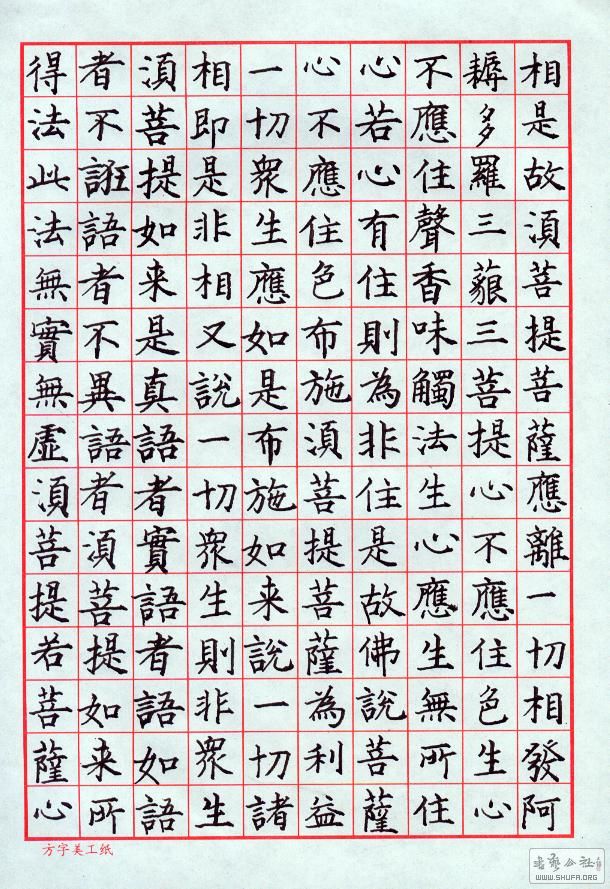 相是故湏菩提菩薩應離一切相發阿
耨多羅三藐三菩提心不應住色生心
不應住聲香味觸法生心應生無所住
心若心有住則為非住是故佛說菩薩
心不應住色布施湏菩提菩薩為利益
一切衆生應如是布施如来說一切諸
相即是非相又說一切衆生則非衆生
湏菩提如来是真語者實語者語如語
者不誑語者不異語者湏菩提如来所
得法此法無實無虛湏菩提若菩薩心
方字美工纸
WWW.SHUFA.ORG